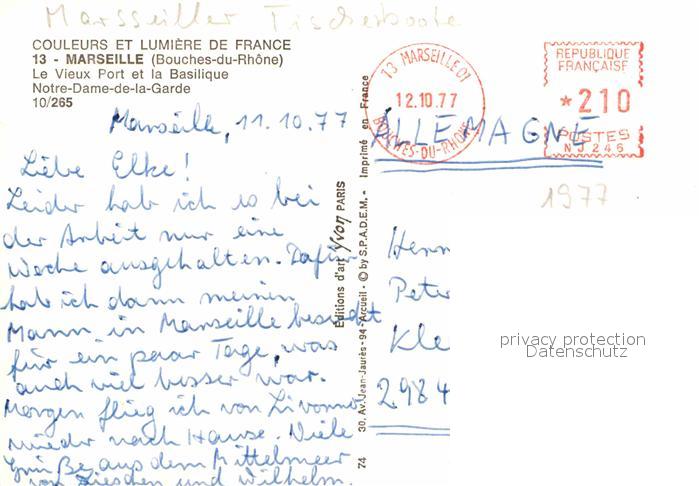 Marsseiller Fischerboote
COULEURS ET LUMIÈRE DE FRANCE
13 - MARSEILLE (Bouches-du-Rhône)
Le Vieux Port et la Basilique
Notre-Dame-de-la-Garde
10/265
Marseille, 11.10.77
Liebe Elke!
Leider hab ich es bei
der Arbeit nur eine
Woche ausgehalten. Dafür
hab ich dann meinen
Mann in Marseille besucht
für ein paar Tage, was
auch viel besser war.
Morgen flieg ich von
wieder nach Hause. Viele
Grüße aus dem Mittelmeer
von und Wilhelm.
Editions d'art Yvon PARIS
30, Av. Jean-Jaurès - 94 - Arcueil - © by S.P.A.D.E.M. - Imprimé en France
74
13 MARSEILLE 01
12.10.77
BOUCHES-DU-RHONE
REPUBLIQUE
FRANÇAISE
*210
POSTES
NJ246
ALLEMAGNE
1977
Herrn
Peter
Kle
2984
privacy protection
Datenschutz